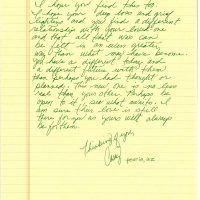 I hope you find take too
I hope your deep love and grief
lightens and you find a different
relationship with your loved one
and that all that was can
be felt in an even greater
way than what may have become.
You have a different today and
a different future with them
than perhaps you had thought or
planned. This new one is no less
real than your other. Perhaps be
open to it, see what awaits. I
am sure their love is still
there for you as yours will always
be for them.
Thinking of you